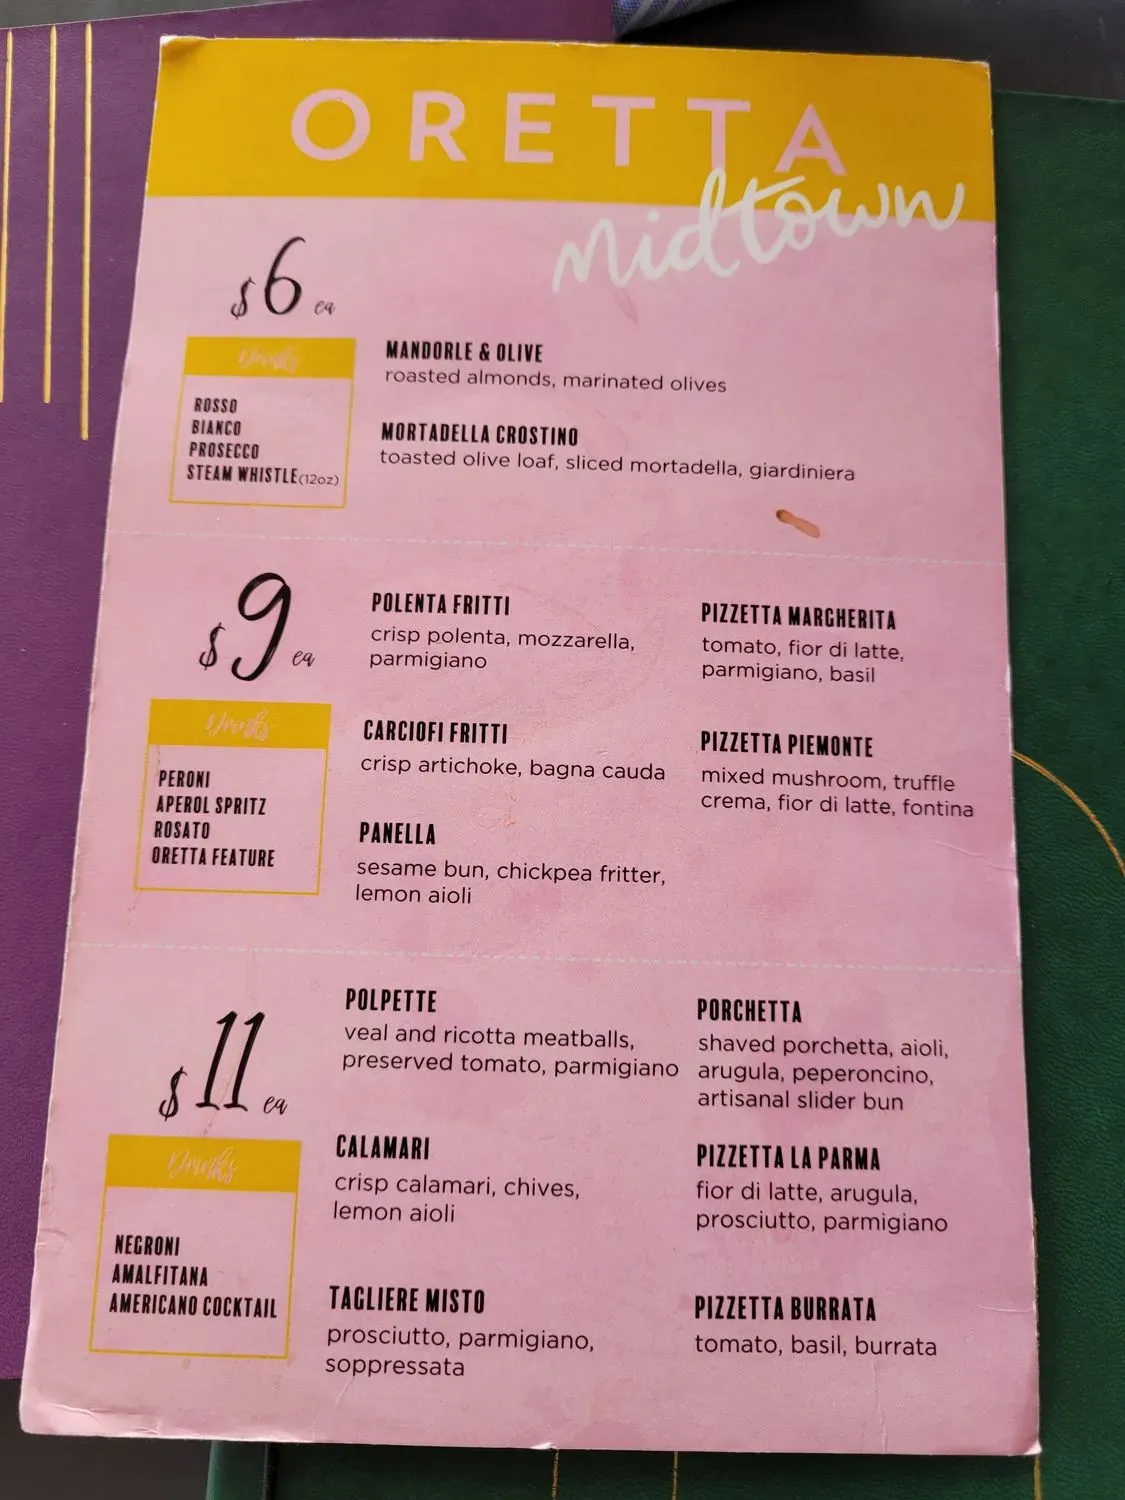 ORETTA
midtown
$6 ea
Drinks
ROSSO
BIANCO
PROSECCO
STEAM WHISTLE(12oz)
MANDORLE & OLIVE
roasted almonds, marinated olives
MORTADELLA CROSTINO
toasted olive loaf, sliced mortadella, giardiniera
$9 ea
Drinks
PERONI
APEROL SPRITZ
ROSATO
ORETTA FEATURE
POLENTA FRITTI
crisp polenta, mozzarella,
parmigiano
CARCIOFI FRITTI
crisp artichoke, bagna cauda
PANELLA
sesame bun, chickpea fritter,
lemon aioli
PIZZETTA MARGHERITA
tomato, fior di latte,
parmigiano, basil
PIZZETTA PIEMONTE
mixed mushroom, truffle
crema, fior di latte, fontina
$11 ea
Drinks
NEGRONI
AMALFITANA
AMERICANO COCKTAIL
POLPETTE
veal and ricotta meatballs,
preserved tomato, parmigiano
CALAMARI
crisp calamari, chives,
lemon aioli
TAGLIERE MISTO
prosciutto, parmigiano,
soppressata
PORCHETTA
shaved porchetta, aioli,
arugula, peperoncino,
artisanal slider bun
PIZZETTA LA PARMA
fior di latte, arugula,
prosciutto, parmigiano
PIZZETTA BURRATA
tomato, basil, burrata